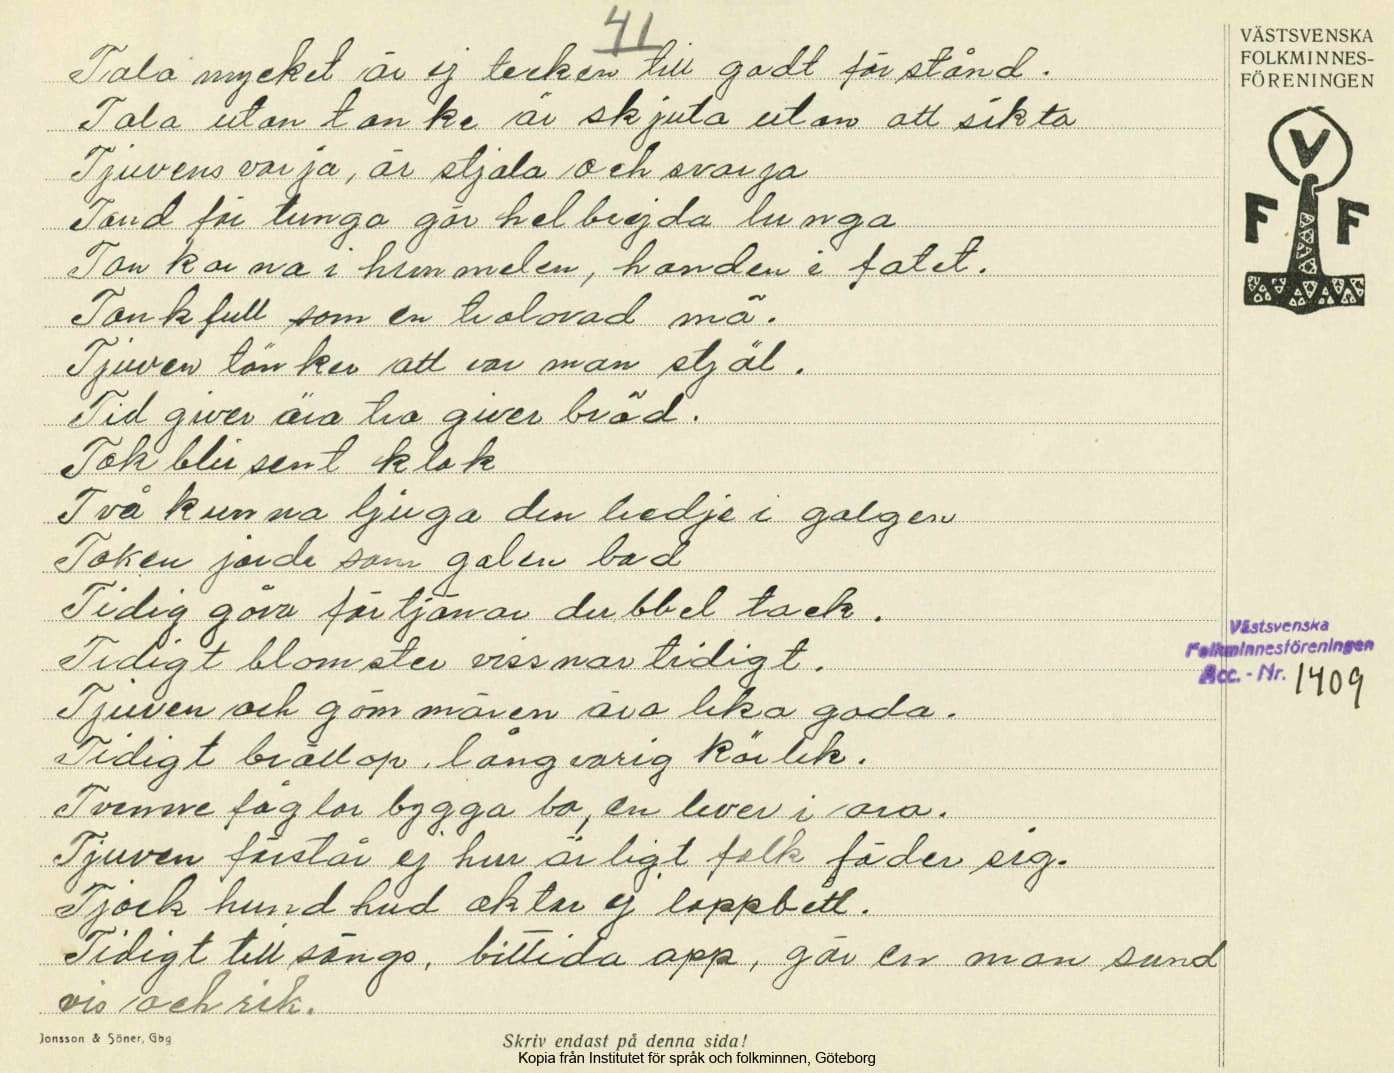 41
Tala mycket är ej tecken till godt förstånd.
Tala utan tanke är skjuta utan att sikta
Tjuvens värja, är stjäla och svärja
Tand för tunga gör helbrejda lunga
Tankarna i himmelen, handen i fatet.
Tankfull som en trolovad mö.
Tjuven tänker att var man stjäl.
Tid giver ära tro giver bröd.
Tok blir sent klok
Två kunna ljuga den tredje i galgen
Token jorde som galen bad
Tidig gåva förtjänar dubbel tack.
Tidigt blomster vissnar tidigt.
Tjuven och gömmaren äro lika goda.
Tidigt bröllop, långvarig kärlek.
Tvenne fåglar bygga bo, en lever i oro.
Tjuven förstår ej hur ärligt folk föder sig.
Tjock hundhud aktar ej loppbett.
Tidigt till sängs, bittida opp, gör en man sund
vis och rik.
VÄSTSVENSKA
FOLKMINNES-
FÖRENINGEN
V
F F
Västsvenska
Folkminnesföreningen
Acc.-Nr. 1409
Jonsson & Söner, Gbg
Skriv endast på denna sida!
Kopia från Institutet för språk och folkminnen, Göteborg